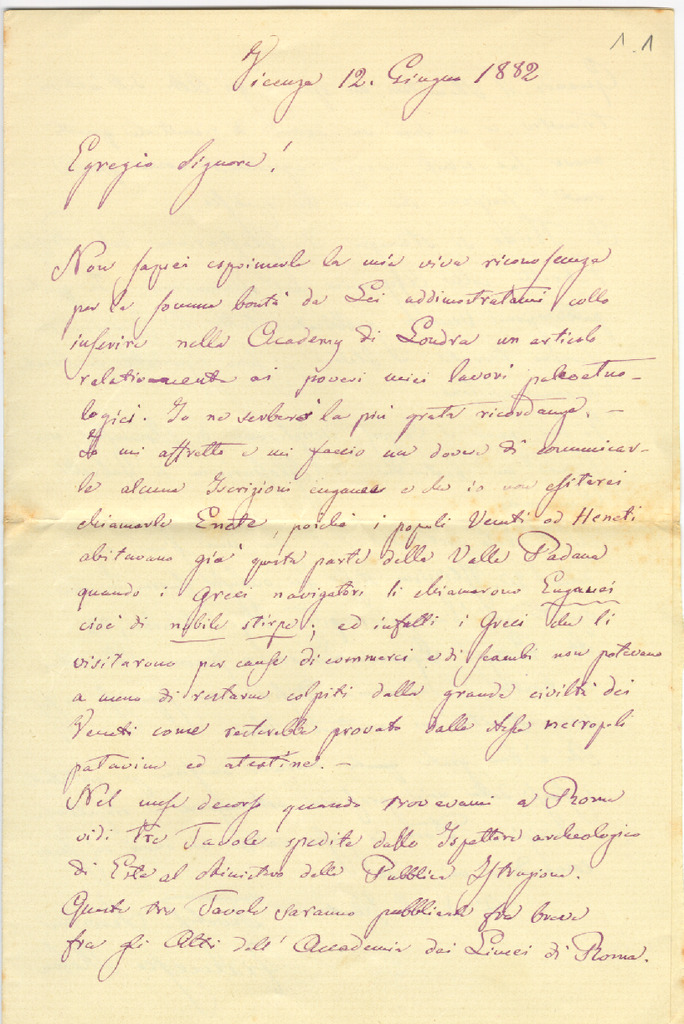 1.1
Vicenza 12. Giugno 1882
Egregio Signore!
Non saprei esprimerle la mia viva riconoscenza
per la somma bontà da Lei addimostratami collo
inserire nella Academy di Londra un articolo
relativamente ai poveri miei lavori paleoetno-
logici. Io ne serberò la più grata ricordanza. —
Io mi affretto e mi faccio un dovere di comunicar-
le alcune Iscrizioni euganee e che io non esiterei
chiamarle Enete, poichè i popoli Veneti od Heneti
abitavano già questa parte della Valle Padana
quando i Greci navigatori li chiamarono Euganei
cioè di nobile stirpe; ed infatti i Greci che li
visitarono per cause di commerci e di scambi non potevano
a meno di restarne colpiti dalla grande civiltà dei
Veneti come resterebbe provato dalle stesse necropoli
patavine ed atestine. —
Nel mese decorso quando trovavami a Roma
vidi tre Tavole spedite dallo Ispettore archeologico
di Este al Ministero della Pubblica Istruzione.
Queste tre Tavole saranno pubblicate fra breve
fra gli Atti dell' Accademia dei Lincei di Roma.